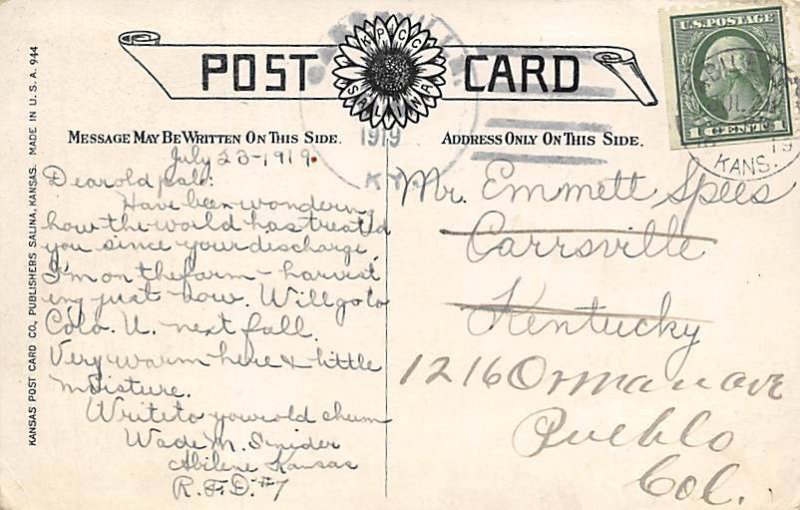 POST CARD
KPCC
SALINA
U.S. POSTAGE
1 CENT 1
KANS.
19
1919
KY.
MESSAGE MAY BE WRITTEN ON THIS SIDE.
ADDRESS ONLY ON THIS SIDE.
KANSAS POST CARD CO., PUBLISHERS SALINA, KANSAS. MADE IN U.S.A. 944
July 23-1919.
Dear old pal:
Have been wondering
how the world has treated
you since your discharge.
I'm on the farm - harvest
ing just now. Will go to
Colo. U. next fall.
Very warm here & little
moisture.
Write to your old chum
Wade M. Snider
Abilene Kansas
R.F.D. #7
Mr. Emmett Spees
Carrsville
Kentucky
1216 Orman ave
Pueblo
Col.